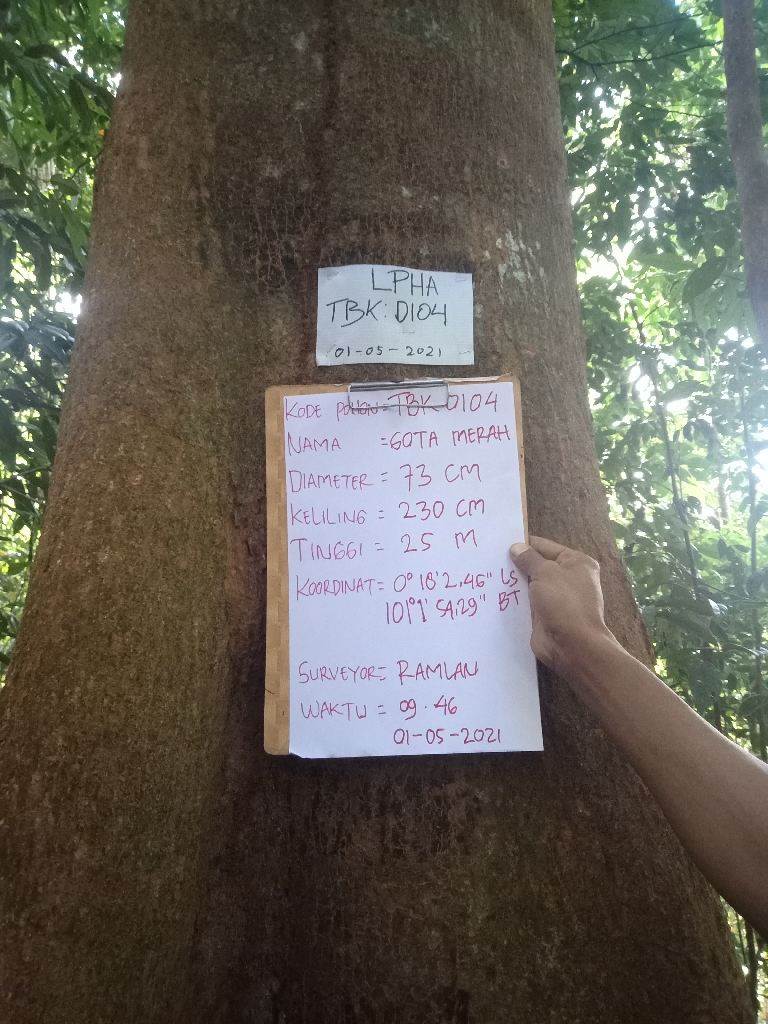 LPHA
TBK: D104
01-05-2021
KODE POHON = TBK D104
NAMA = GOTA MERAH
DIAMETER = 73 CM
KELILING = 230 CM
TINGGI = 25 M
KOORDINAT = 0° 18' 2,46" LS
101° 1' 54,29" BT
SURVEYOR = RAMLAN
WAKTU = 09.46
01-05-2021